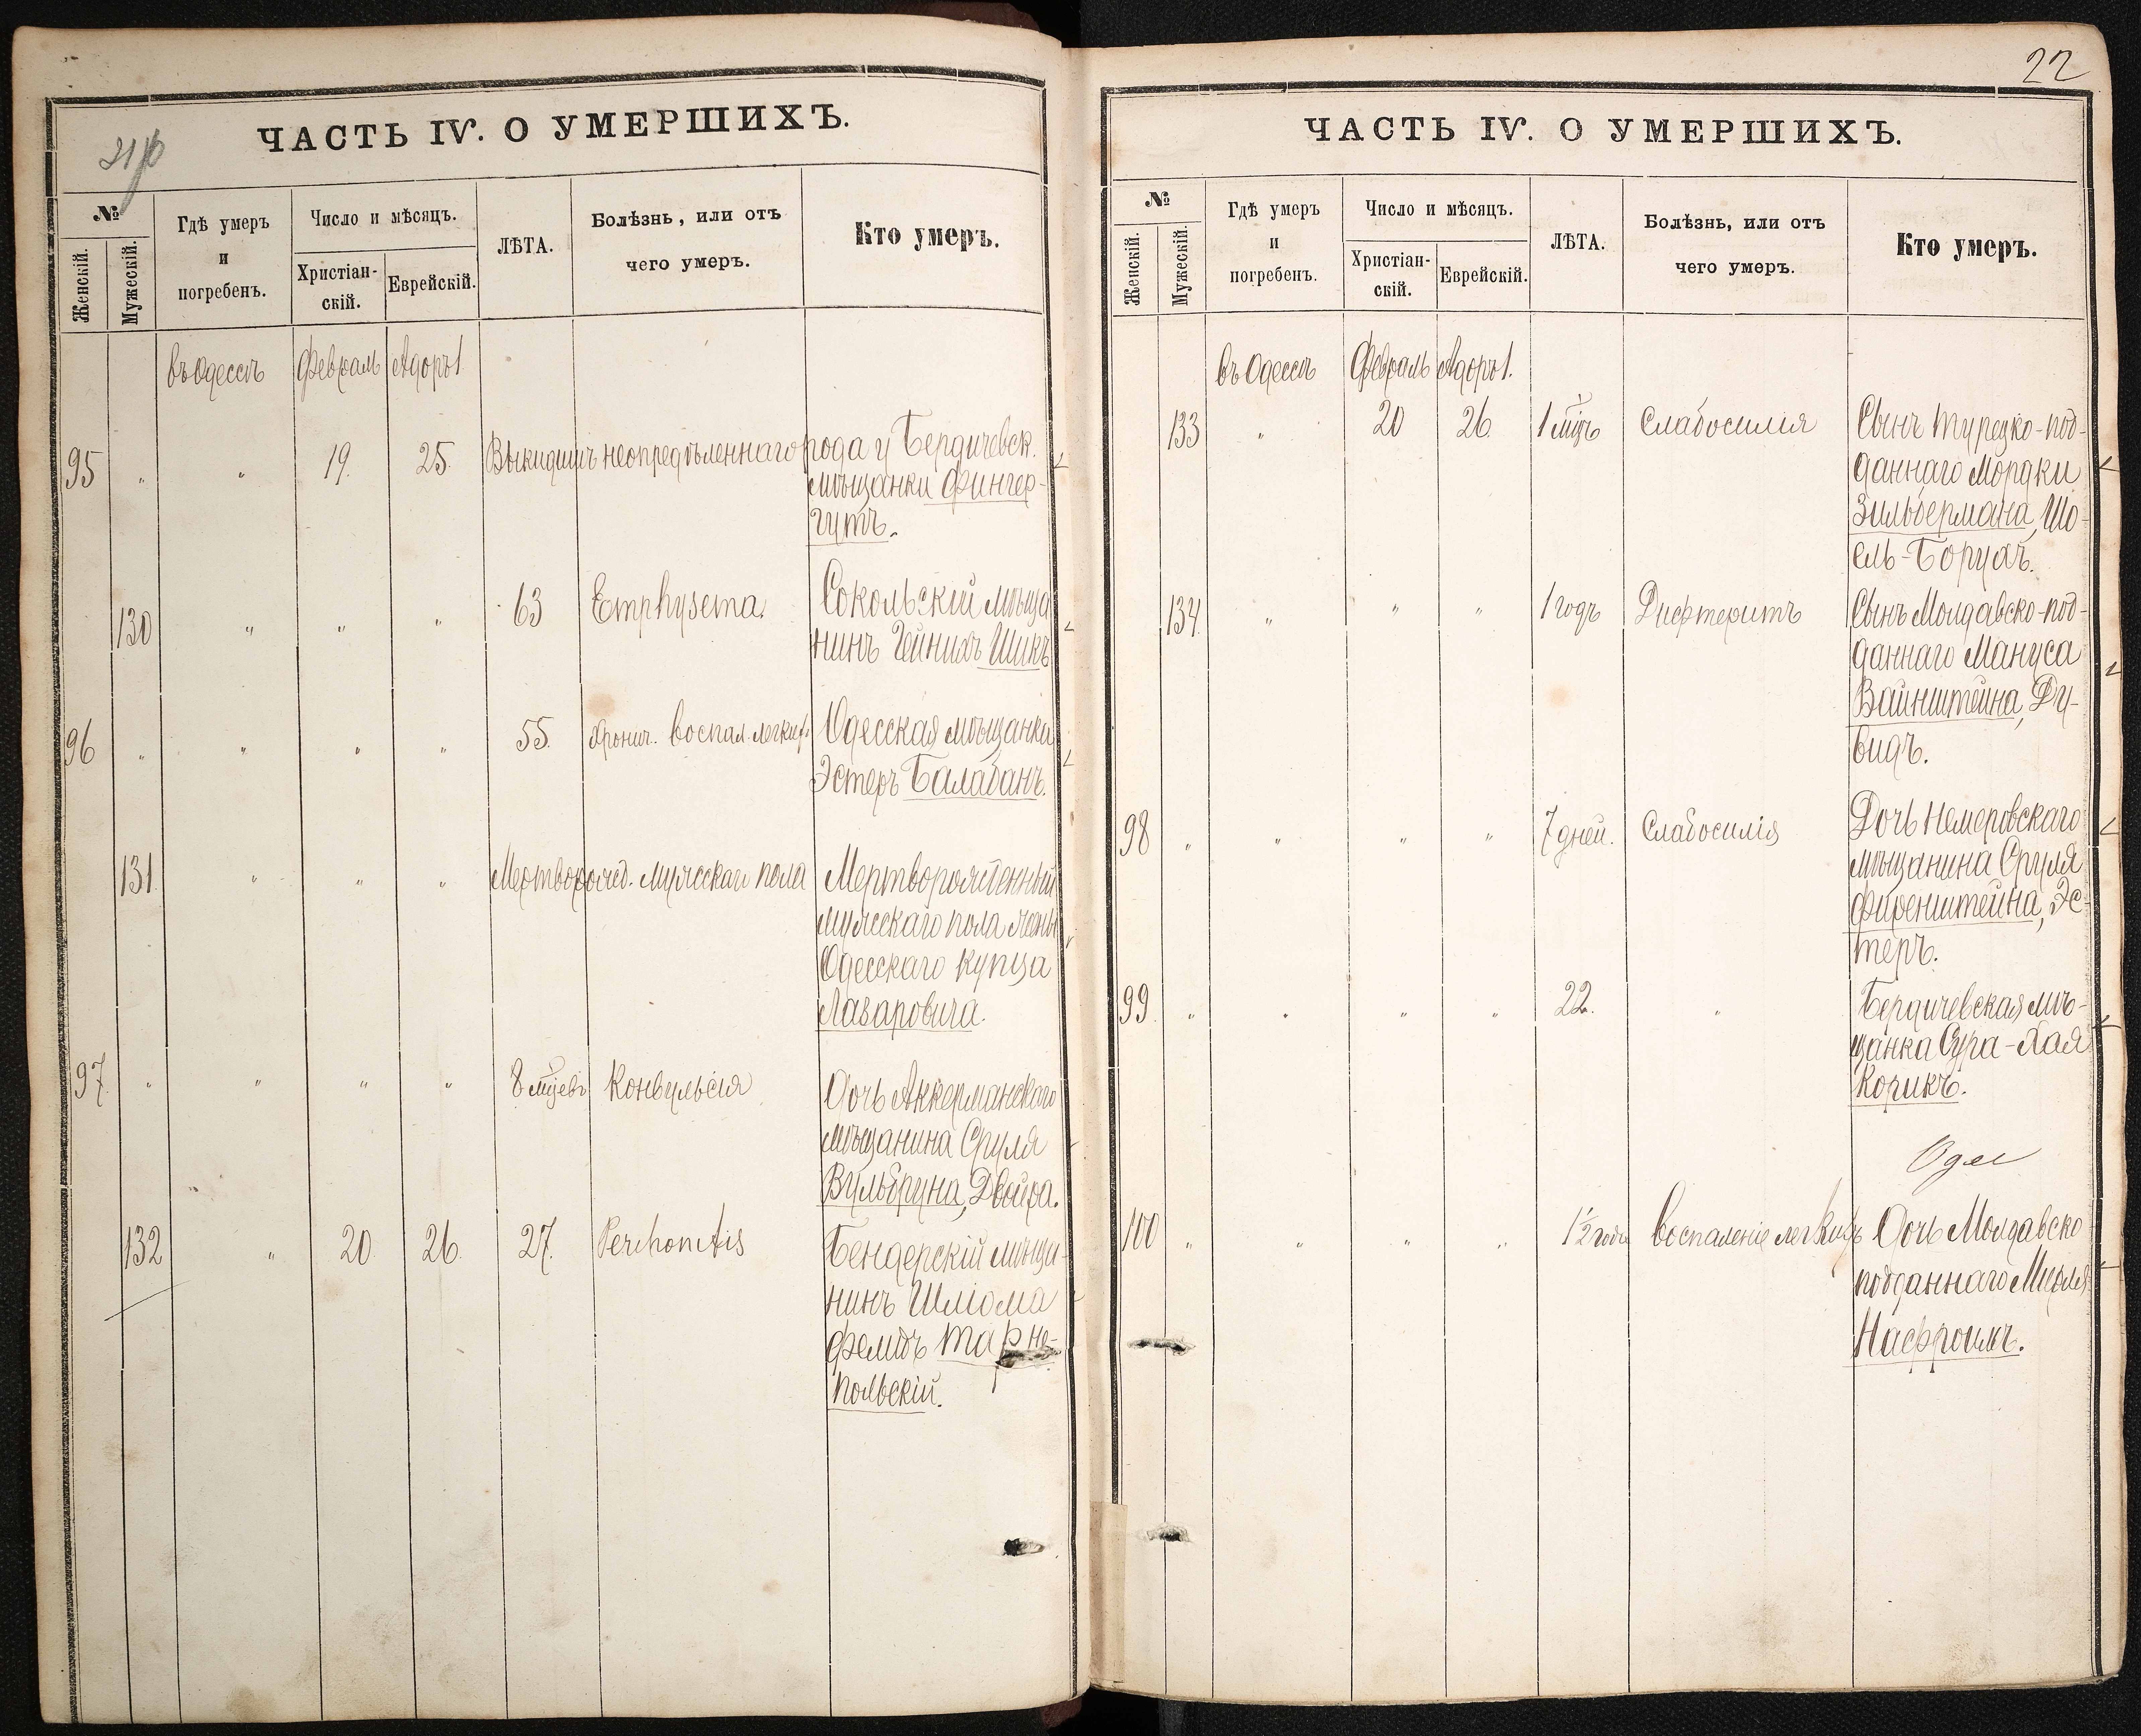 ЧАСТЬ IV. О УМЕРШИХЪ.
№
Женскій.
Мужескій.
Гдѣ умеръ
и
погребенъ.
Число и мѣсяцъ.
Христіан-
скій.
Еврейскій.
ЛѢТА.
Болѣзнь, или отъ
чего умеръ.
Кто умеръ.
въ Одессѣ Февраль Адоръ 1.
95 " " 19. 25. Выкидышъ неопредѣленнаго рода у Бердичевск.
мѣщанки Фингер-
гутъ.
130 " " " 63 Emphysema. Сокольскій мѣща
нинъ Гейнихъ Шикъ
96 " " " " 55. Хронич. воспал. легких. Одесская мѣщанка
Эстеръ Балабанъ.
131 " " " Мертворожд. мужскаго пола Мертворожденный
мужскаго пола жены
Одесскаго купца
Лазаровича.
97. " " " " 8 мцевъ Конвульсія Дочь Аккерманскаго
мѣщанина Сруля
Вульбруна, Двойра.
132 " 20 26. 27. Бендерскій мѣща-
нинъ Шліома
Тарно-
польскій.
22
ЧАСТЬ IV. О УМЕРШИХЪ.
№
Женскій.
Мужескій.
Гдѣ умеръ
и
погребенъ.
Число и мѣсяцъ.
Христіан-
скій.
Еврейскій.
ЛѢТА.
Болѣзнь, или отъ
чего умеръ.
Кто умеръ.
въ Одессѣ Февраль Адоръ 1.
133 " 20 26. 1 мцъ Слабосилія Сынъ турецко-под-
даннаго Мордки
Зильбермана, Шо-
ель-Борухъ.
134. " " " 1 годъ Дифтеритъ Сынъ Молдавско-под-
даннаго Мануса
Вайнштейна, Ду-
видъ.
98 " " " " 7 дней. Слабосилія Дочь Немеровскаго
мѣщанина Сруля
Фиренштейна, Эс-
теръ.
99 " " " " 22. " Бердичевская мѣ-
щанка Сура-Хая
Корикъ.
100 " " " " 1½ года Воспаленіе легкихъ Дочь Молдавско
подданнаго
Нафроимъ.